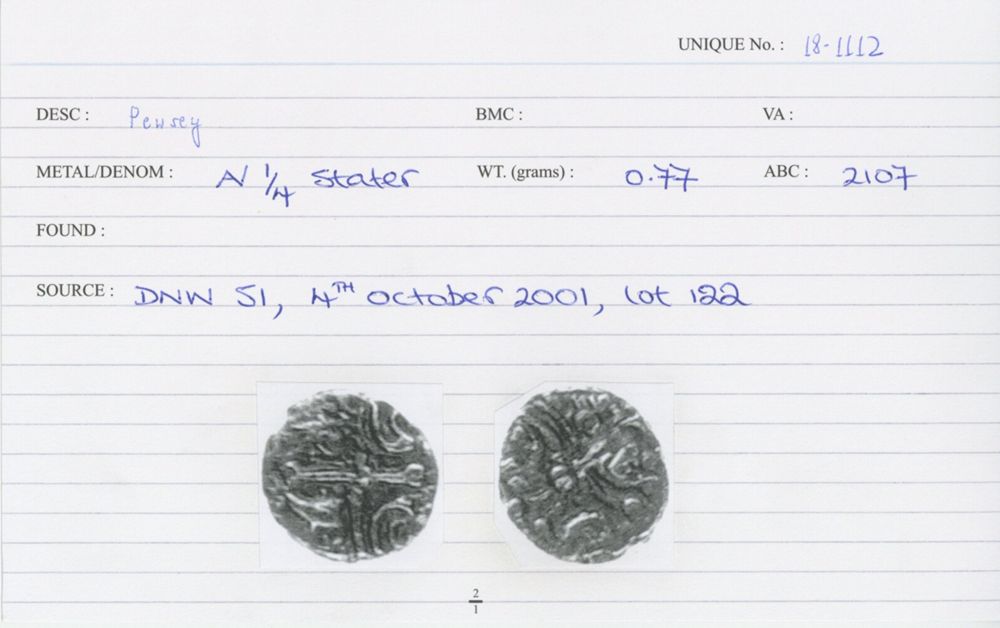 UNIQUE No. : 18-1112
DESC : Pewsey BMC : VA :
METAL/DENOM : AV 1/4 Stater WT. (grams) : 0.77 ABC : 2107
FOUND :
SOURCE : DNW 51, 4TH October 2001, Lot 122
2/1